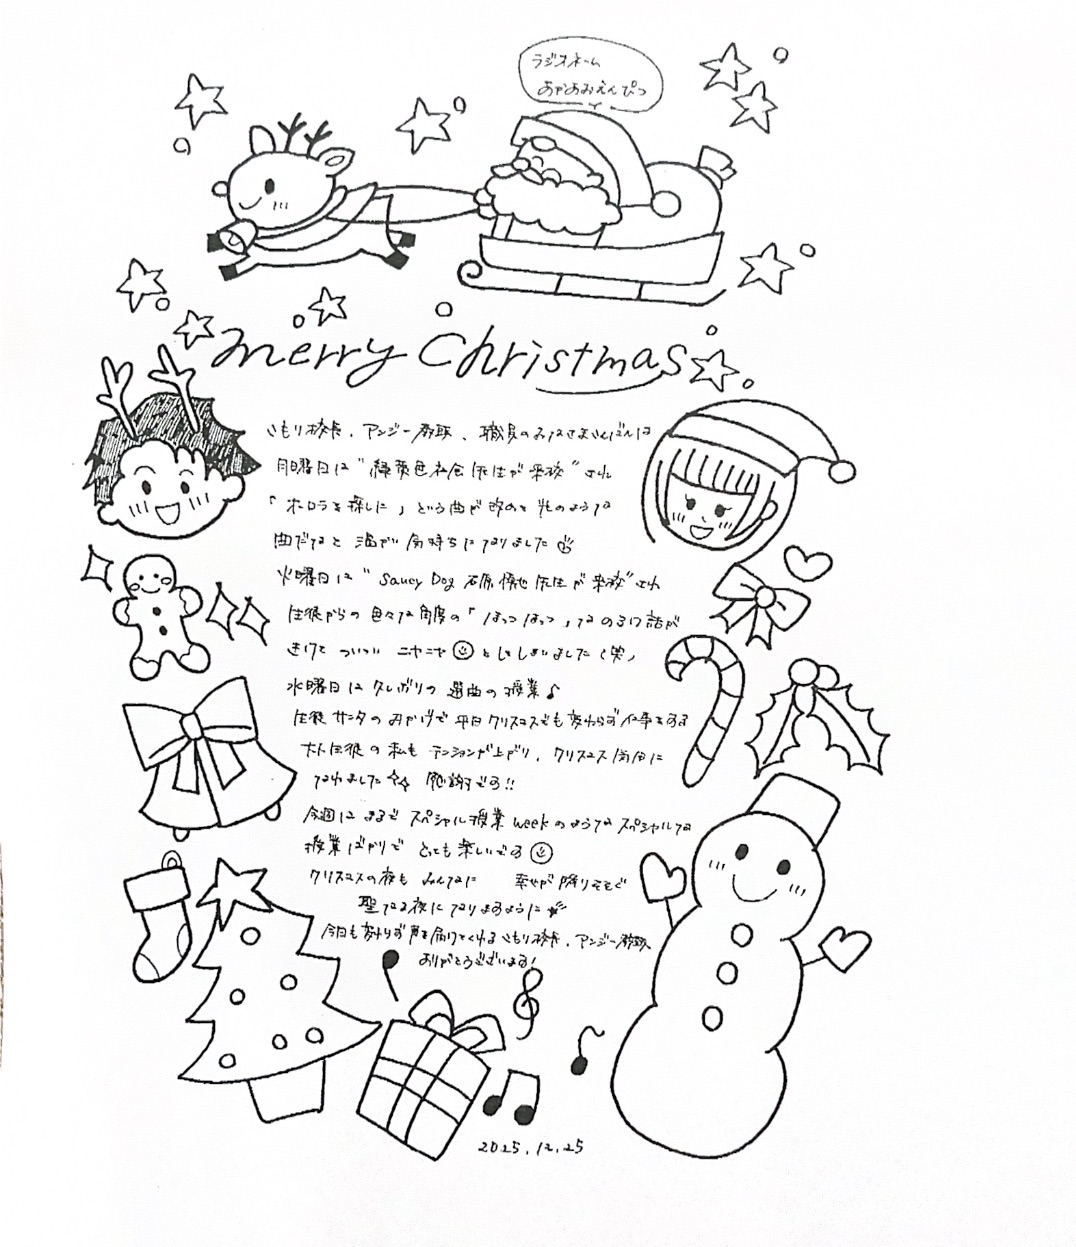 ラジオネーム
あやあみえんぴつ
merry Christmas
こもり校長、アンジー教頭、職員のみなさまこんばんは
月曜日は"緑黄色社会先生が来校"され
「オーロラを探しに」という曲が改めて光のような
曲だなと温かい気持ちになりました
火曜日は"Saucy Dog 石原慎也先生が来校"され
生徒からの色々な角度の「ほっこほっこ」なのろけ話が
きけて ついつい ニヤニヤ としてしまいました(笑)
水曜日は久しぶりの選曲の授業♪
生徒サンタのおかげで平日クリスマスでも変わらず仕事をする
大人生徒の私もテンションが上がり、クリスマス気分に
なれました☆☆ 感謝です!!
今週はまるでスペシャル授業weekのようなスペシャルな
授業ばかりで とっても楽しいです
クリスマスの夜も みんなに 幸せが降りそそぐ
聖なる夜になりますように
今日も変わらず声を届けてくれるこもり校長、アンジー教頭
ありがとうございます!
2025.12.25